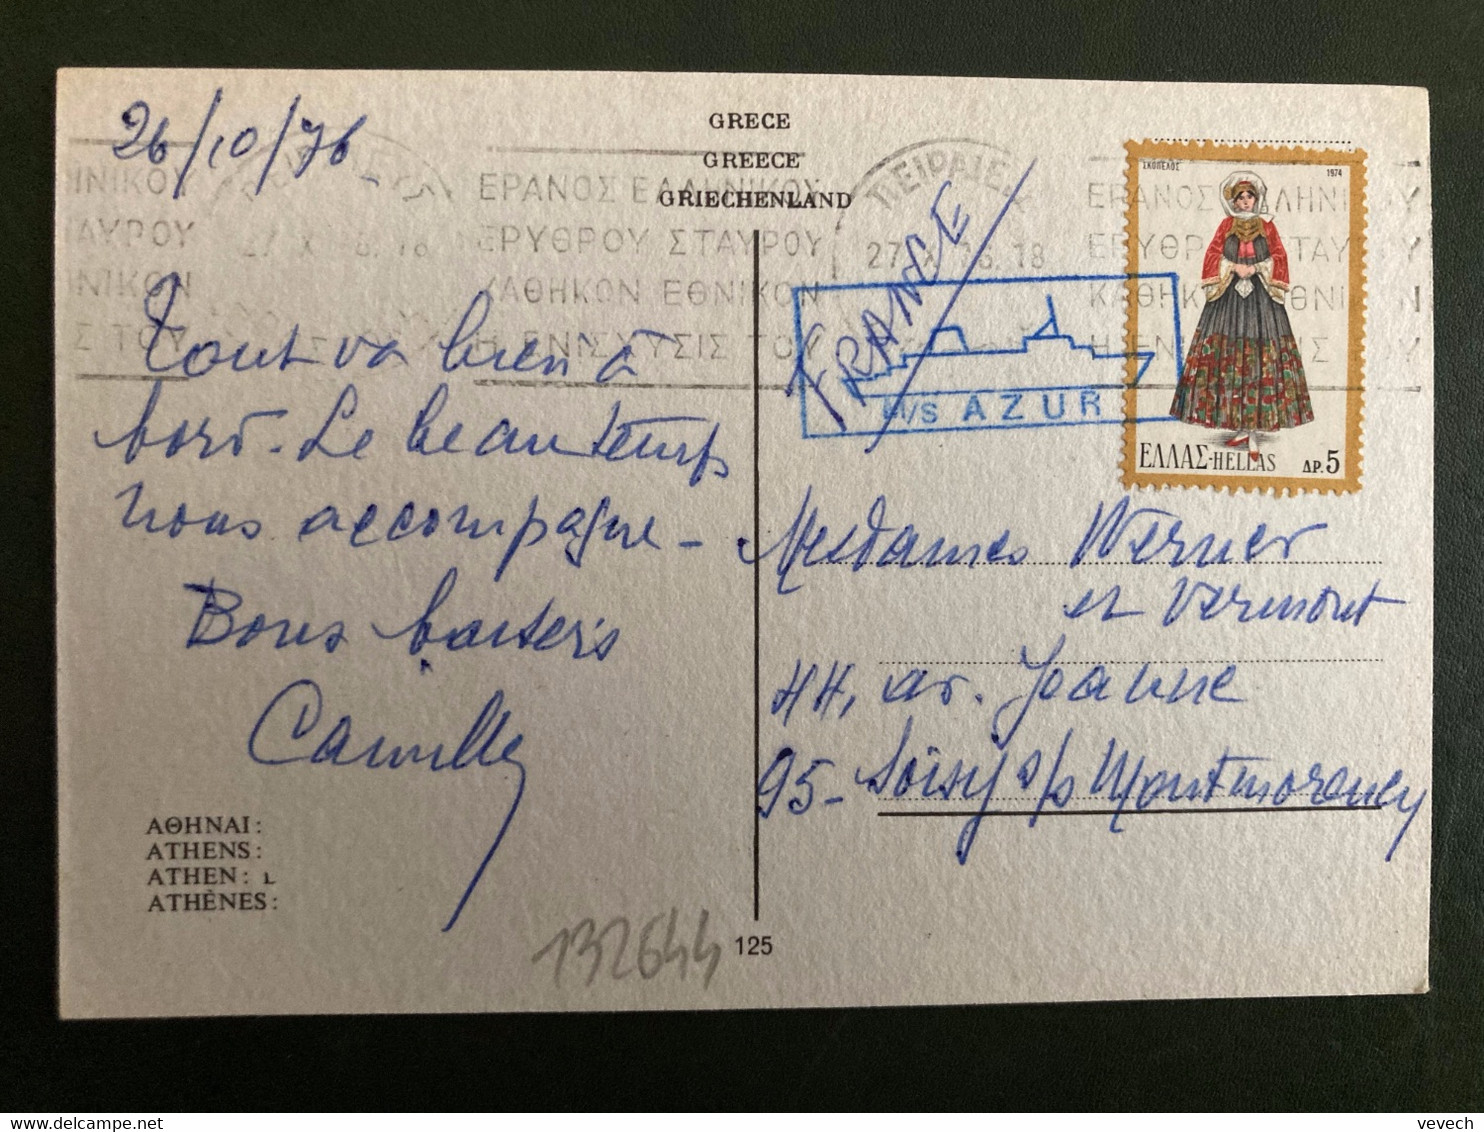 26/10/76
GRECE
GREECE
GRIECHENLAND
ΙΝΙΚΟΥ
ΑΥΡΟΥ
ΝΙΚΟΝ
Σ ΤΟΥ
ΕΡΑΝΟΣ ΕΛΛΗΝΙΚΟΥ
ΕΡΥΘΡΟΥ ΣΤΑΥΡΟΥ
ΚΑΘΗΚΟΝ ΕΘΝΙΚΟΝ
Η ΕΝΙΣΧΥΣΙΣ ΤΟΥ
ΠΕΙΡΑΙΕΥ
27 X 76. 18
FRANCE
M/S AZUR
ΣΚΟΠΕΛΟΣ 1974
ΕΛΛΑΣ-HELLAS ΔΡ. 5
Tout va bien à
bord - Le beau temps
nous accompagne -
Bons baisers
Camille
Mesdames Werner
et Vermont
44, av. Jeanne
95 - Soisy s/s Montmorency
ΑΘΗΝΑΙ:
ATHENS:
ATHEN:
ATHÈNES:
132644
125